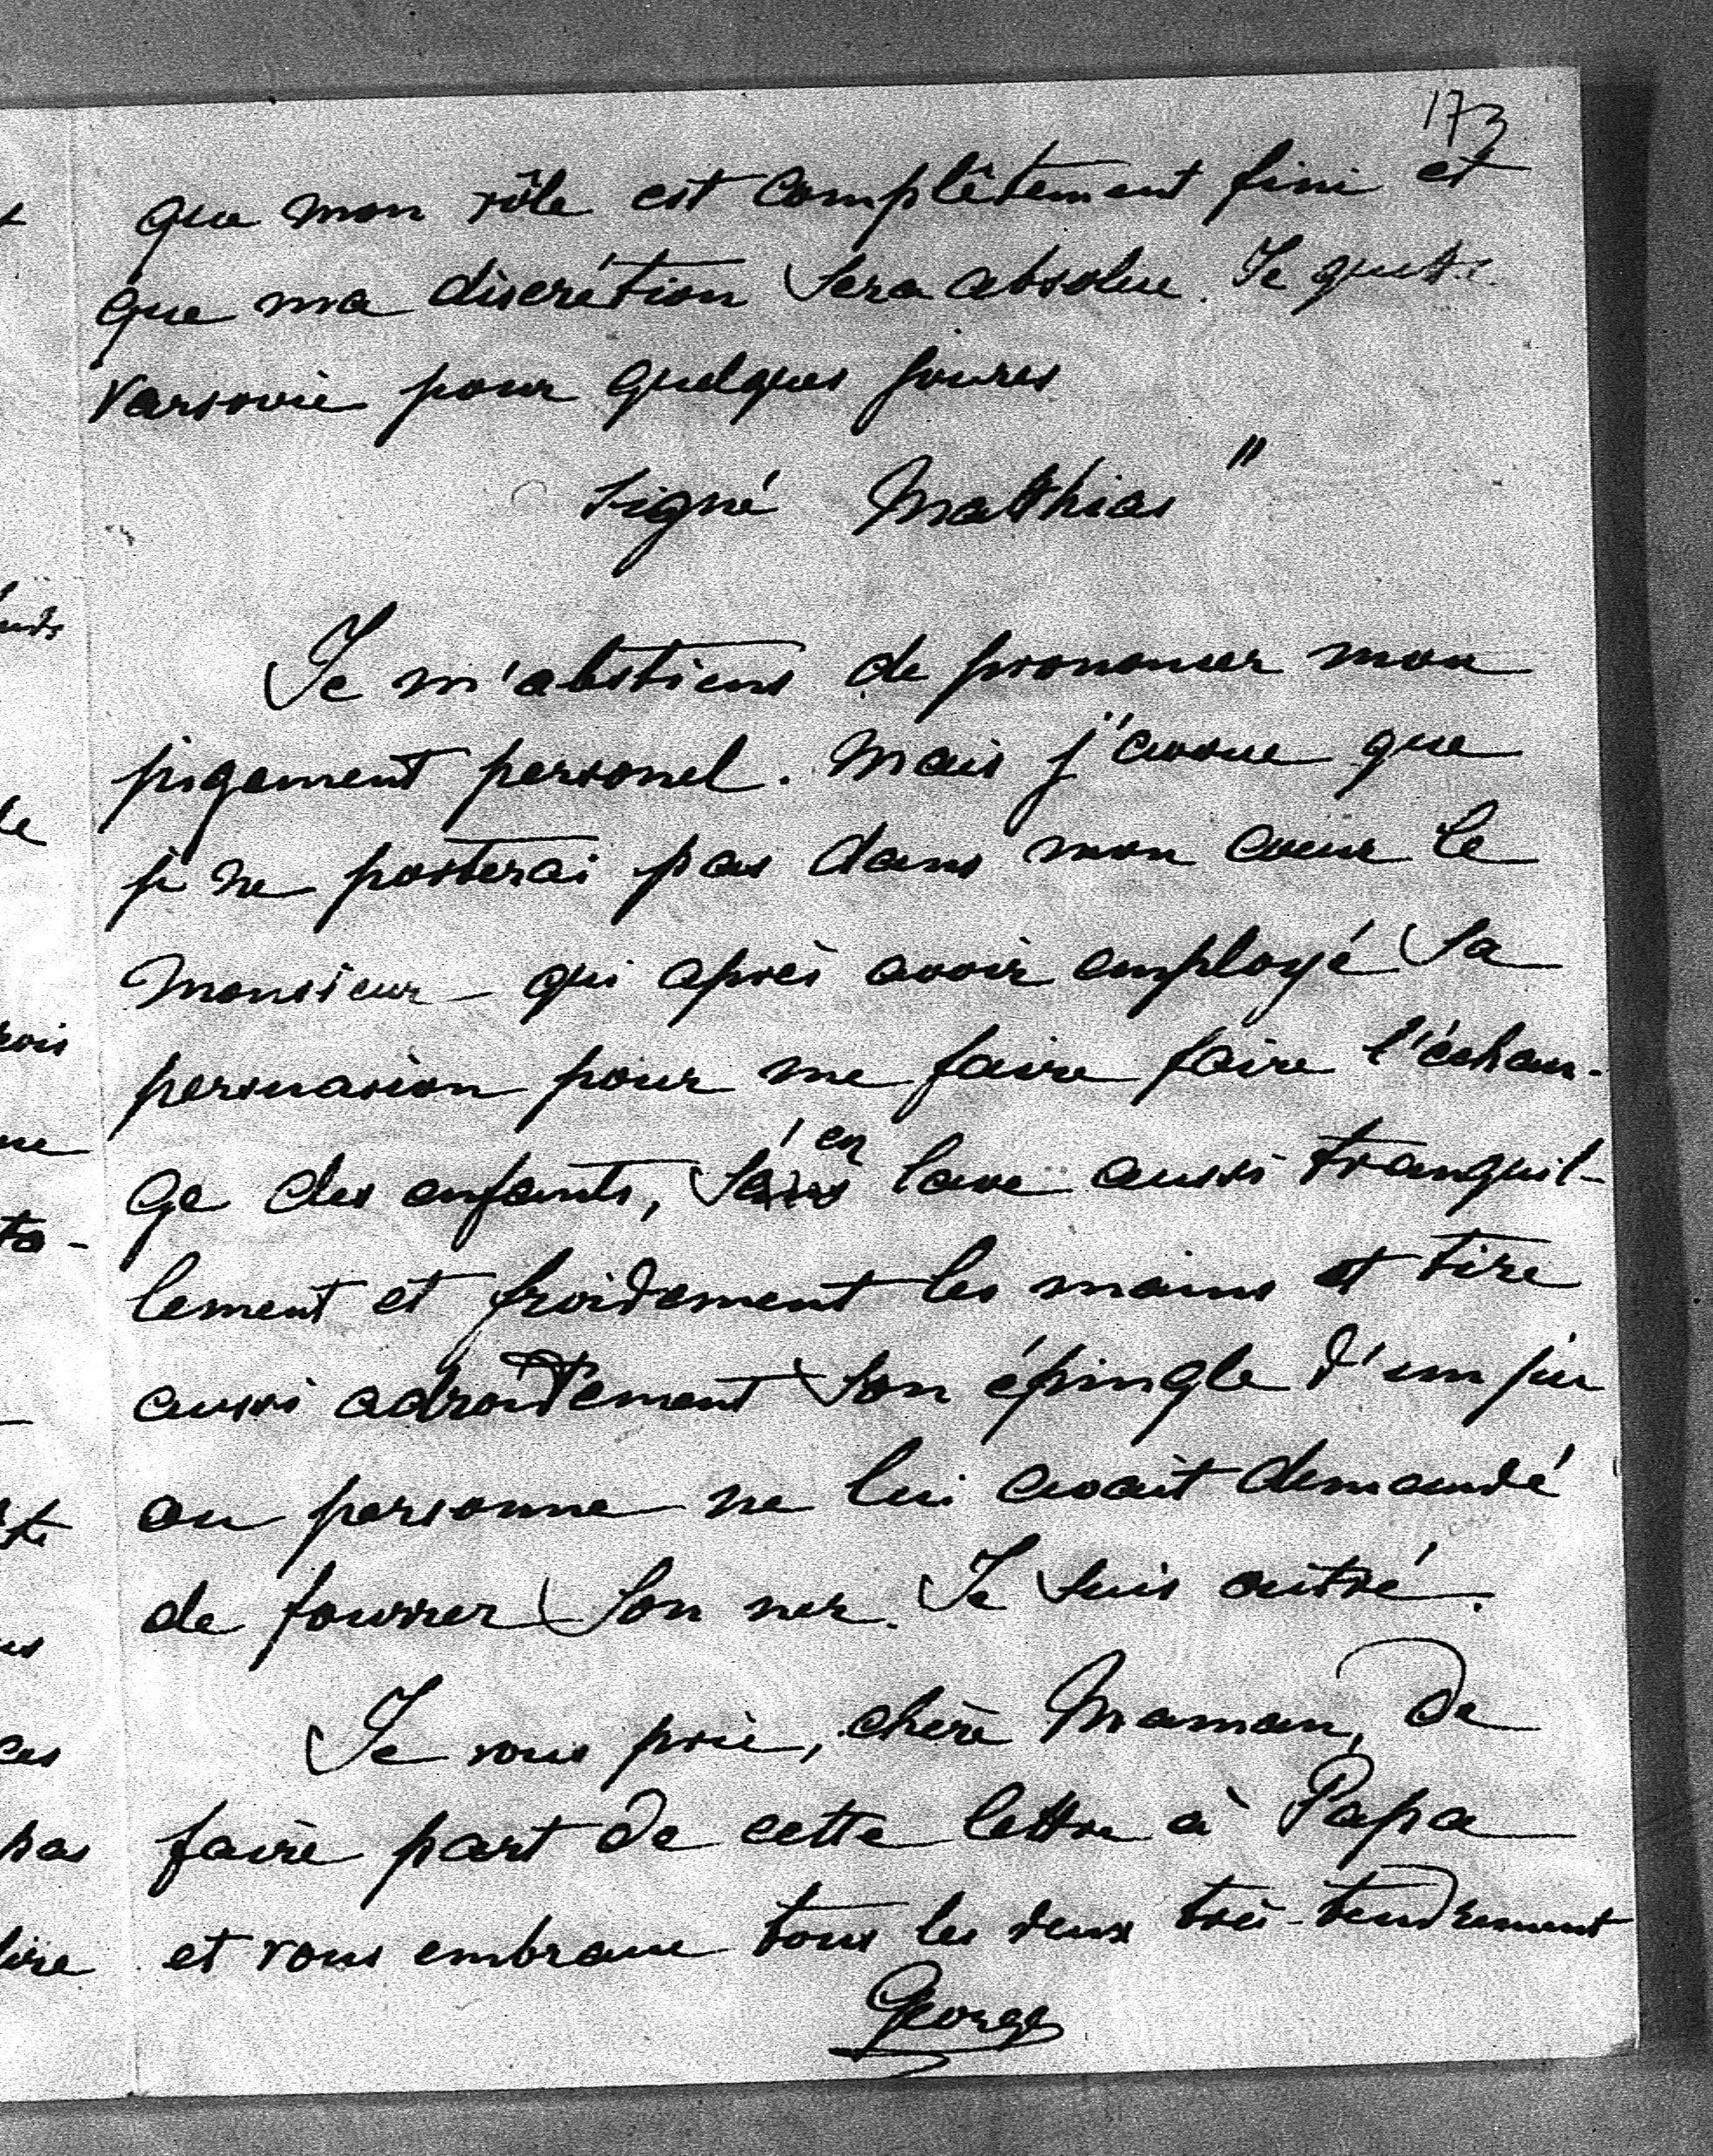 173
que mon rôle est complêtement fini et
que ma discrétion sera absolue. Je quitte
Varsovie pour quelques jours
signé Matthias"
Je m'abstiens de prononcer mon
jugement personel. Mais j'avoue que
je ne porterai pas dans mon coeur le
Monsieur – qui après avoir employé sa
persuasion pour me faire faire l'échan-
ge des enfants, s'en lave aussi tranquil-
lement et froidement les mains et tire
aussi adroitement son épingle d'un jeu
ou personne ne lui avait demandé
de fourrer son nez. Je suis outré.
Je vous prie, chère Maman, de
faire part de cette lettre à Papa
et vous embrasse tous les deux très-tendrement
George